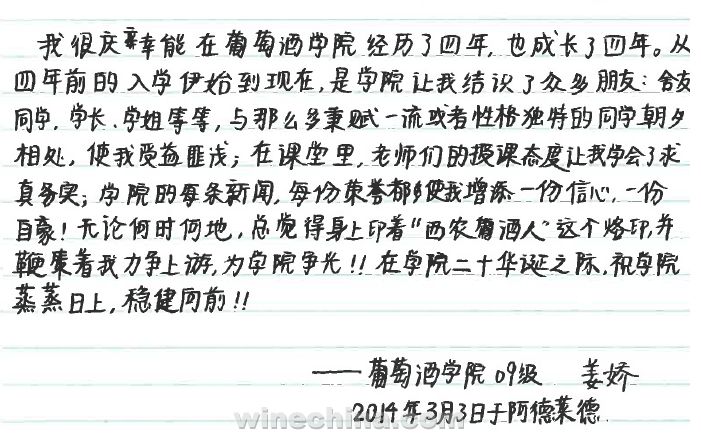 我很庆幸能在葡萄酒学院经历了四年,也成长了四年。从
四年前的入学伊始到现在,是学院让我结识了众多朋友:舍友
同学,学长、学姐等等,与那么多秉赋一流或者性格独特的同学朝夕
相处,使我受益匪浅;在课堂里,老师们的授课态度让我学会了求
真务实;学院的每条新闻,每份荣誉都使我增添一份信心,一份
自豪!无论何时何地,总觉得身上印着“西农葡酒人”这个烙印,并
鞭策着我力争上游,为学院争光!!在学院二十华诞之际,祝学院
蒸蒸日上,稳健向前!!
——葡萄酒学院09级 姜娇
2014年3月3日于阿德莱德.
www.winechina.com